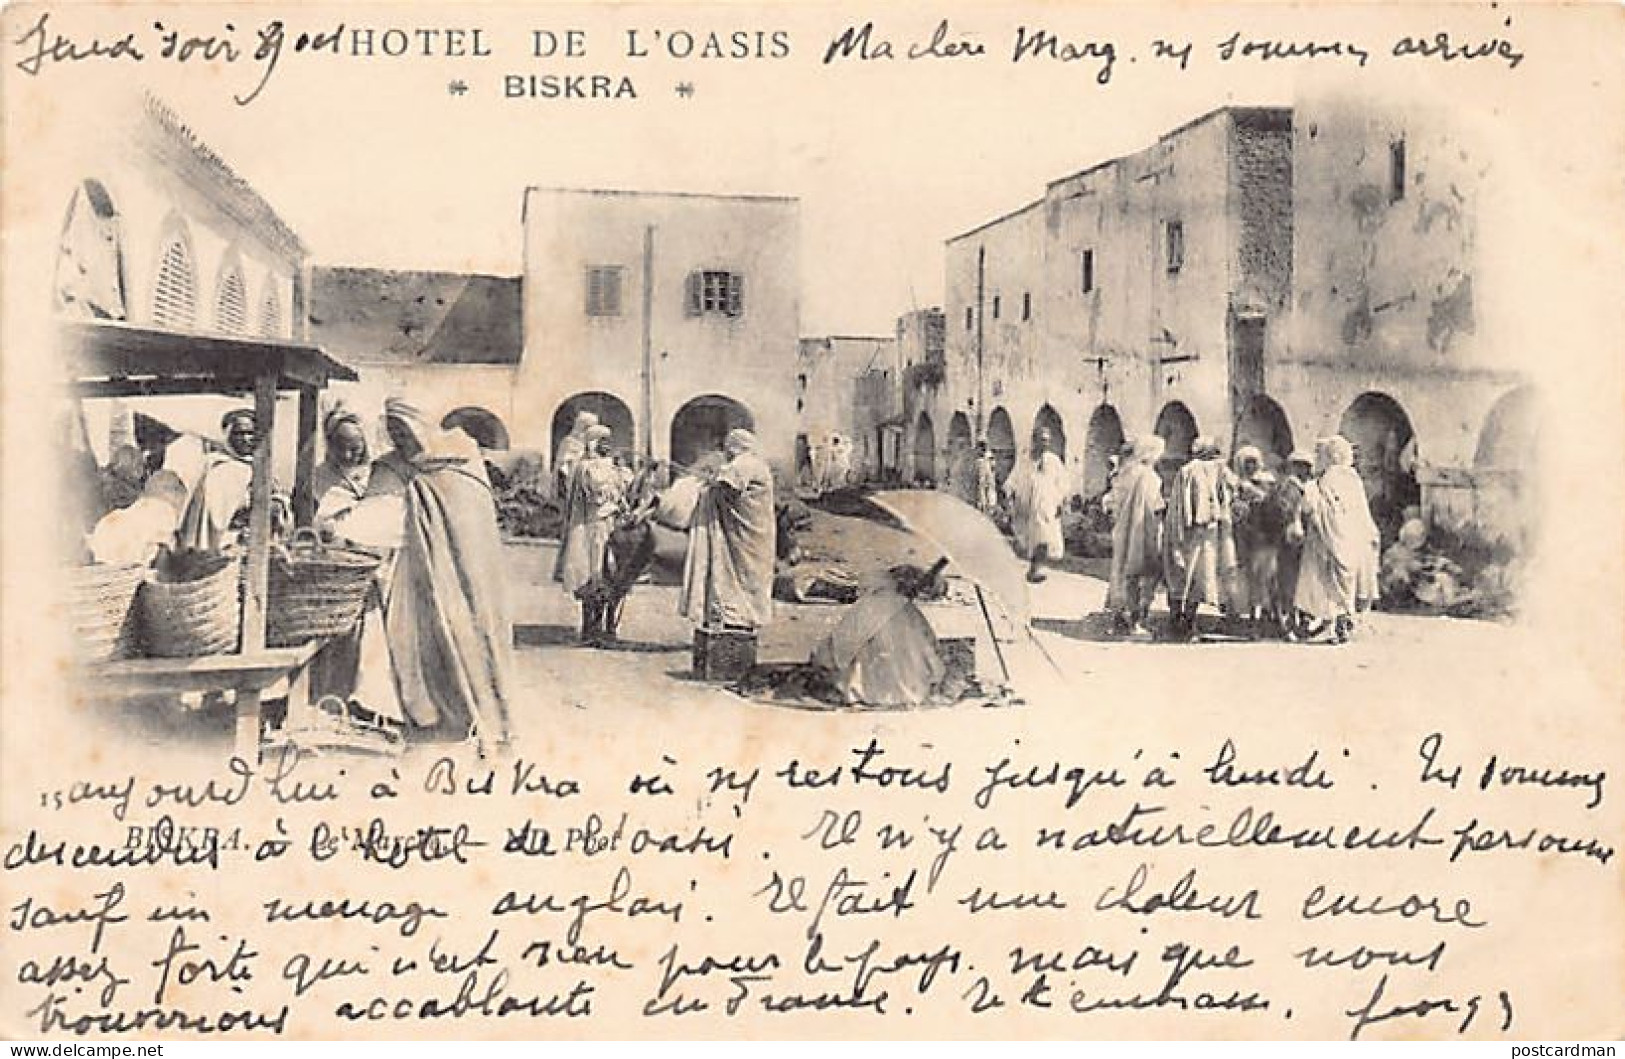 Jeudi soir 9 oct HOTEL DE L'OASIS Ma chère Marg. ns sommes arrivés
* BISKRA *
aujourd'hui à Biskra où ns restons jusqu'à lundi. Ns sommes
BISKRA. — Le Marché. — ND Phot
descendus à l'hotel de l'oasis. Il n'y a naturellement personne
sauf un menage anglais. Il fait une chaleur encore
assez forte qui n'est rien pour le pays. mais que nous
trouverions accablante en France. Je t'embrasse, Georges
postcardman